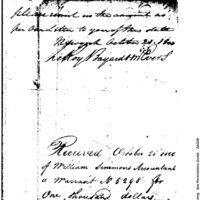 please remit us the amount as
per our letter to you of this date
New York October 20. 1800
LeRoy Bayard & McEvers
Received October 25 1800
of William Simmons Accountant
a Warrant No 5298 for
One thousand dollars